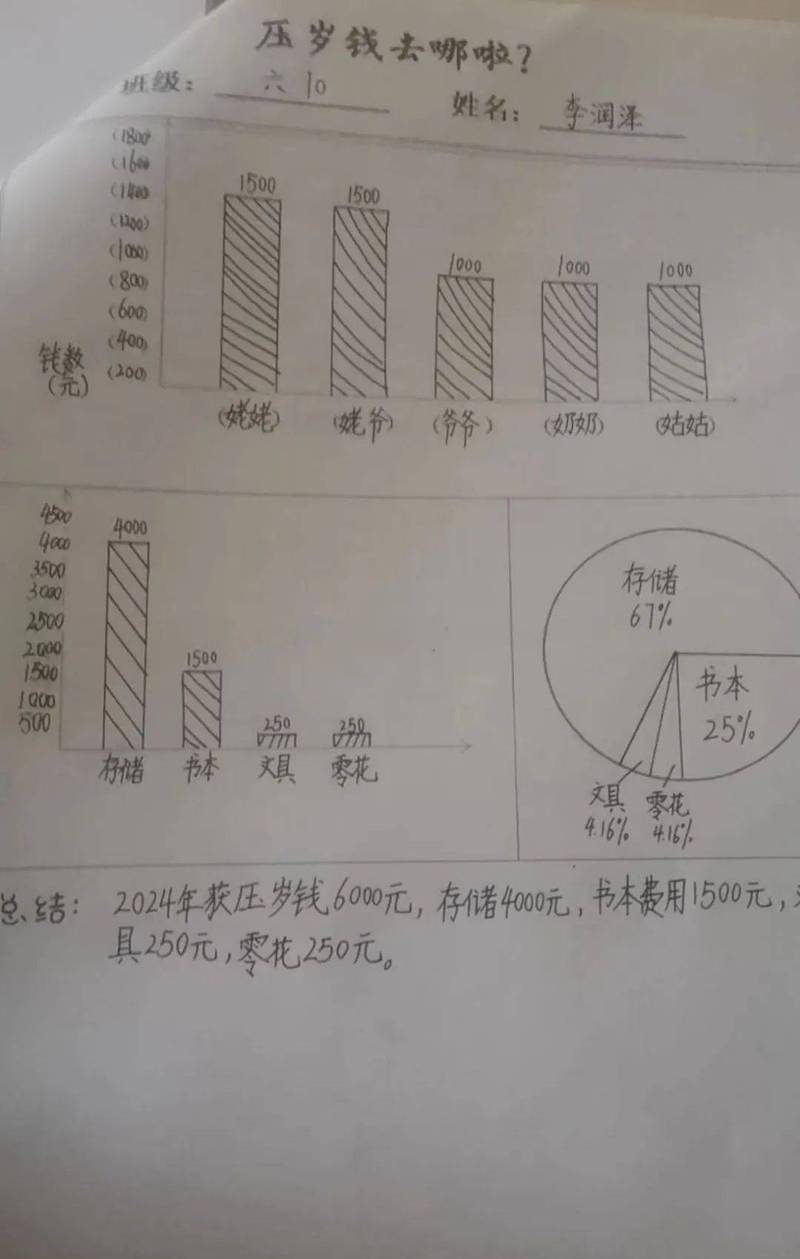 压岁钱去哪啦?
班级: 六10 姓名: 李润泽
(1800
(1600
(1400
(1200)
(1000)
(800)
(600)
(400)
(200)
钱数
(元)
1500 1500 1000 1000 1000
(姥姥) (姥爷) (爷爷) (奶奶) (姑姑)
4500
4000
3500
3000
2500
2000
1500
1000
500
4000 1500 250 250
存储 书本 文具 零花
存储
67%
书本
25%
文具
4.16%
零花
4.16%
总结: 2024年获压岁钱6000元, 存储4000元, 书本费用1500元,
具250元, 零花250元。